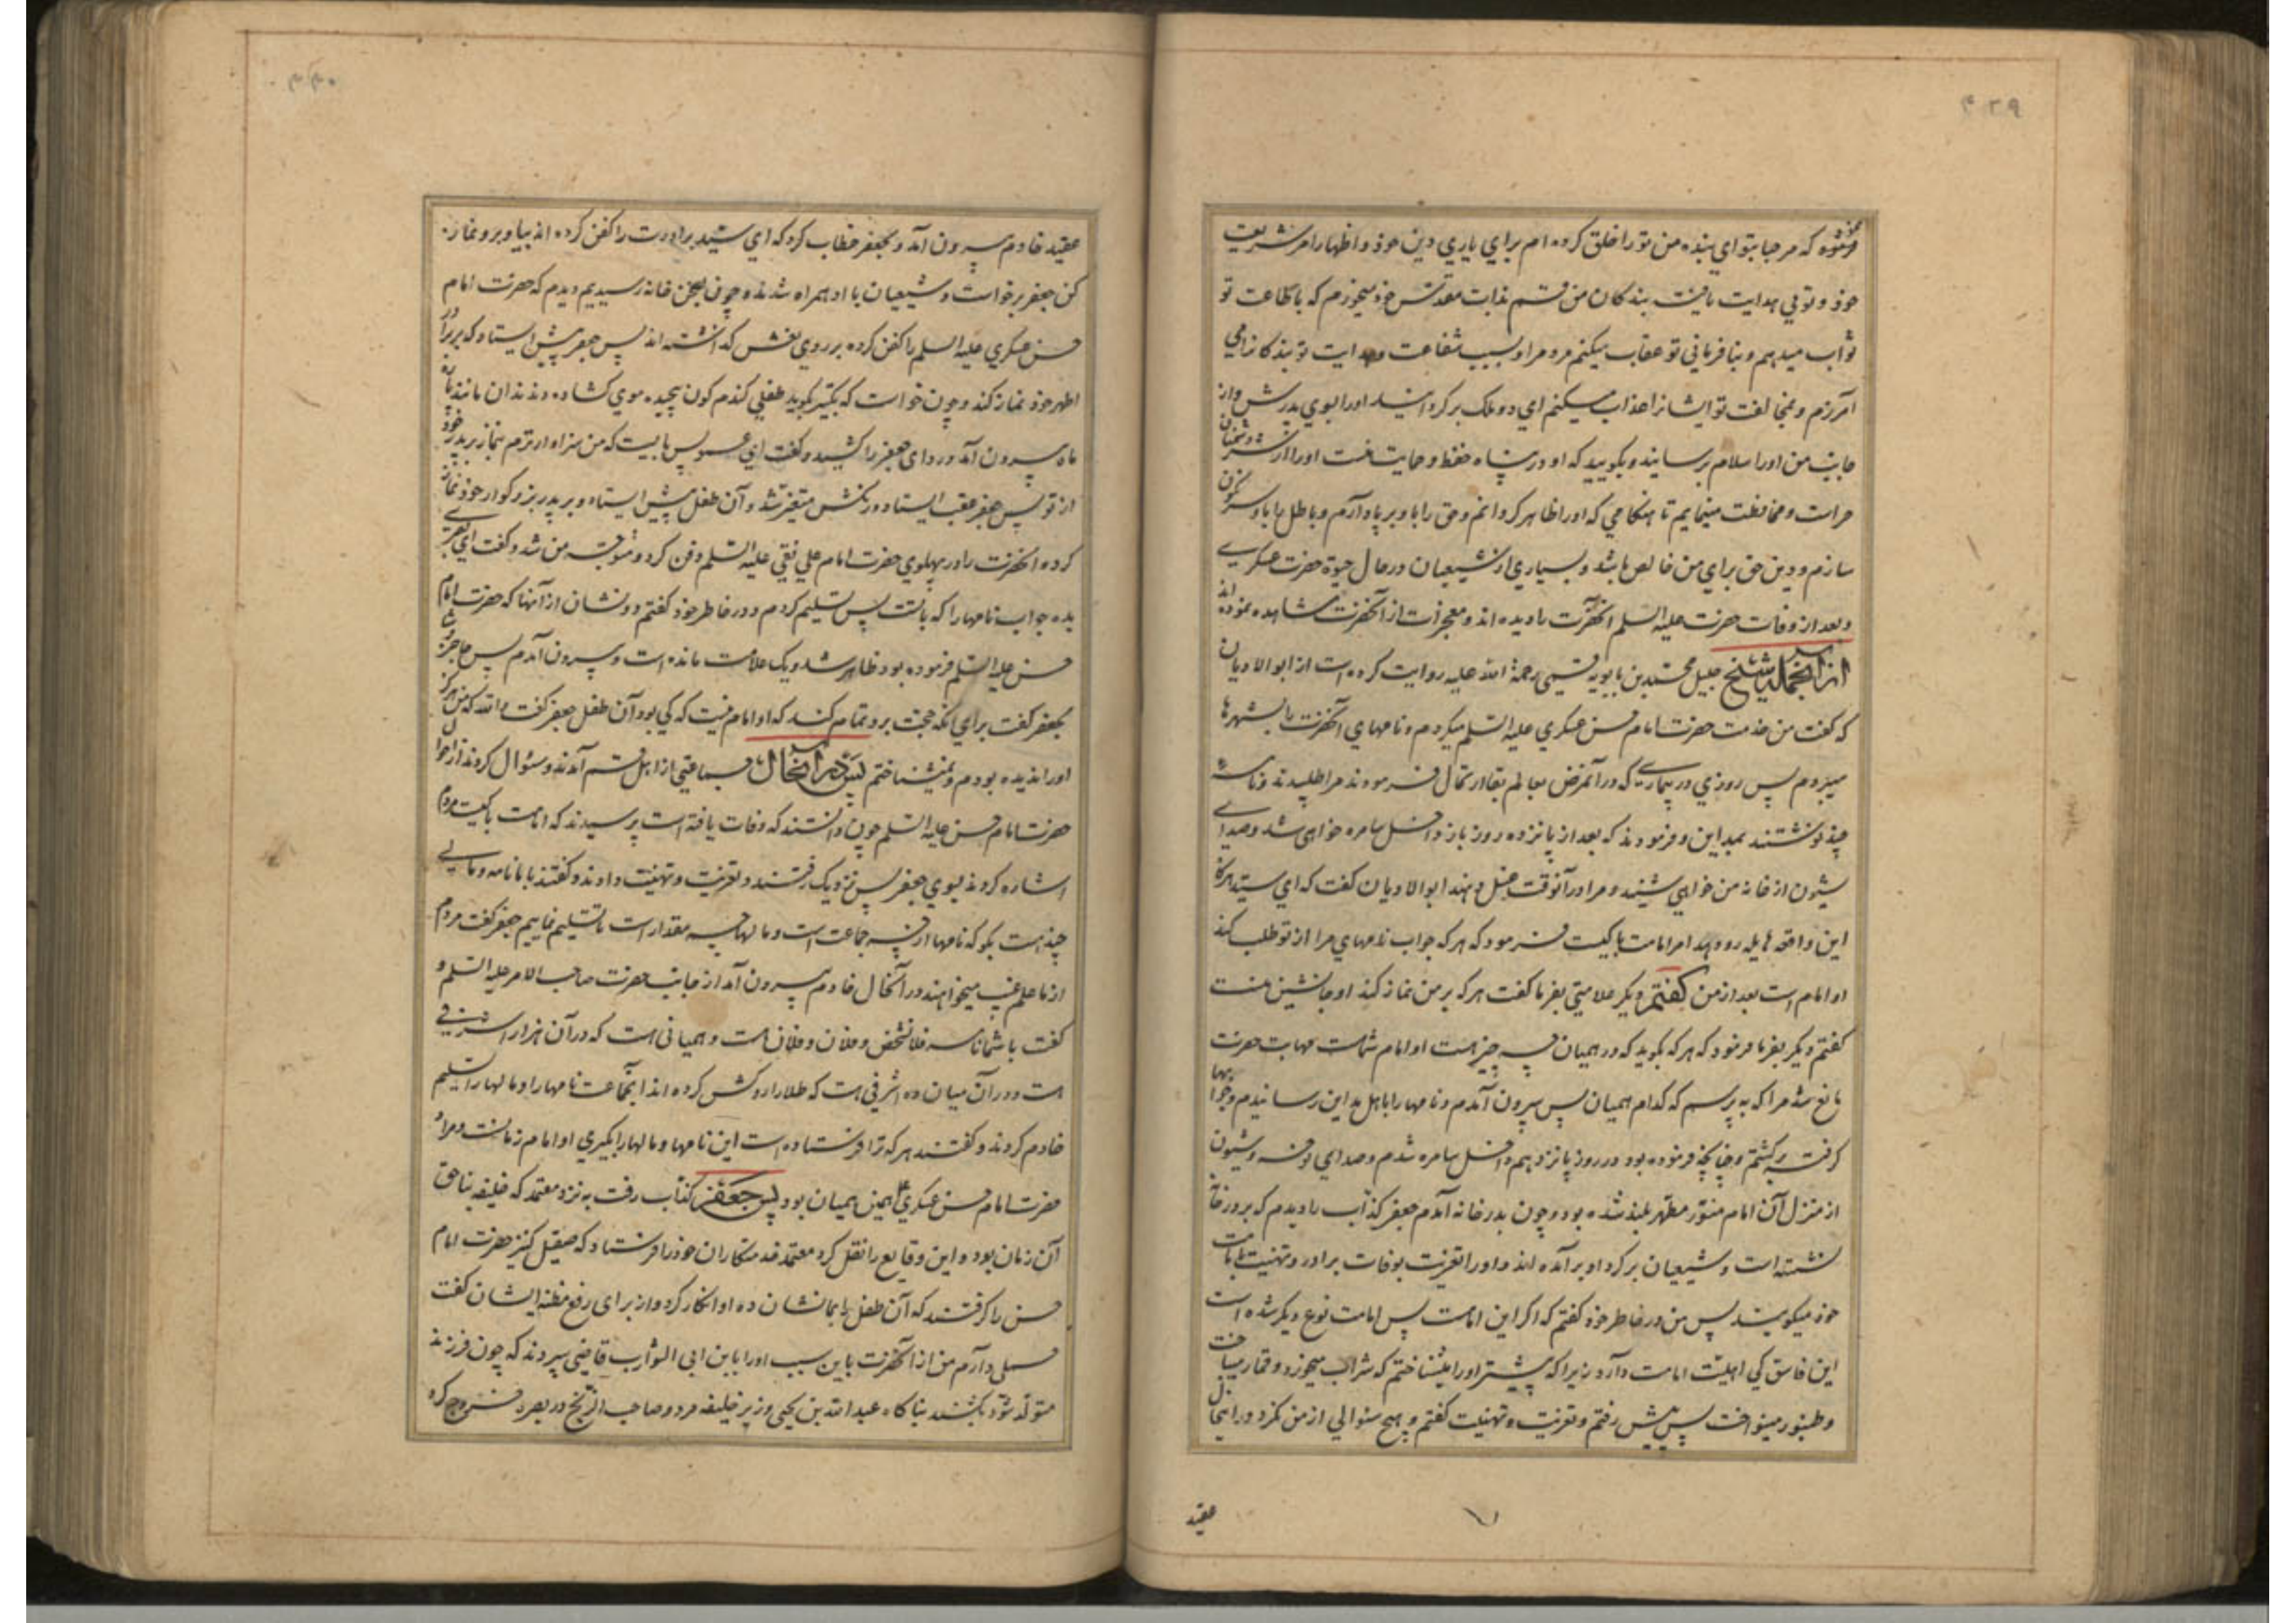 ۴۳۹
فرمود که مرحبا بتو ای بنده من تو را خلق کرده ام برای یاری دین خود و اظهار امر شریعت
خود و توئی هدایت یافته بندکان من قسم بذات مقدس خود میخورم که باطاعت تو
ثواب میدهم و بنافرمانی تو عقاب میکنم مردم را و بسبب شفاعت و هدایت تو بندکان را می
آمرزم و بمخالفت تو ایشانرا عذاب میکنم ای دو ملک برکردانید او را بسوی پدرش و از
جانب من او را سلام برسانید و بکویید که او در پناه حفظ و حمایت منست او را از شر دشمنان
حراست و محافظت مینمایم تا هنکامی که او را ظاهر کردانم و حق را با او برپا دارم و باطل را با او سرنکون
سازم و دین حق برای من خالص باشد و بسیاری از شیعیان در حال حیوة حضرت عسکری
و بعد از وفات حضرت علیه السلم آنحضرت را دیده اند و معجزات از آنحضرت مشاهده نموده اند
از انجمله شیخ جلیل محمد بن بابویه قمی رحمة الله علیه روایت کرده است از ابوالادیان
که گفت من خدمت حضرت امام حسن عسکری علیه السلم میکردم و نامهای آنحضرت را بشهرها
میبردم پس روزی در بیماری که در آنمرض بعالم بقا ارتحال فرمودند مرا طلبیدند و نامه
چند نوشتند بمداین و فرمودند که بعد از پانزده روز باز داخل سامره خواهی شد و صدای
شیون از خانه من خواهی شنید و مرا در آنوقت غسل دهند ابوالادیان گفت که ای سید هرکاه
این واقعه هایله رو دهد امر امامت با کیست فرمود که هر که جواب نامهای مرا از تو طلب کند
او امام است بعد از من گفتم دیکر علامتی بفرما گفت هر که بر من نماز کند او جانشین منست
گفتم دیکر بفرما فرمود که هر که بکوید که در همیان چه چیز است او امام شماست مهابت حضرت
مانع شد مرا که بپرسم که کدام همیان پس بیرون آمدم و نامها را باهل مداین رسانیدم و جوابها
کرفته برکشتم و چنانچه فرموده بود در روز پانزدهم داخل سامره شدم و صدای نوحه و شیون
از منزل آن امام منور مطهر بلند شده بود و چون بدر خانه آمدم جعفر کذاب را دیدم که بر در خانه
نشسته است و شیعیان بر کرد او برآمده اند و او را تعزیت بوفات برادر و تهنیت بامامت
خود میکویند پس من در خاطر خود گفتم که اکر این امامست پس امامت نوع دیکر شده است
این فاسق کی اهلیت امامت دارد زیرا که پیشتر او را میشناختم که شراب میخورد و قمار میباخت
و طنبور مینواخت پس پیش رفتم و تعزیت و تهنیت گفتم و هیچ سئوالی از من نکرد در اینحال
عقید
۴۴۰
عقید خادم بیرون آمد و بجعفر خطاب کرد که ای سید برادرت را کفن کرده اند بیا و برو نماز
کن جعفر برخاست و شیعیان با او همراه شدند و چون بصحن خانه رسیدیم دیدم که حضرت امام
حسن عسکری علیه السلم را کفن کرده بر روی نعش کذاشته اند پس جعفر پیش ایستاد که بر برادر
اطهر خود نماز کند و چون خواست که تکبیر کوید طفلی کندم کون پیچیده موی کشاده دندان مانند پاره
ماه بیرون آمد و ردای جعفر را کشید و گفت ای عمو پس بایست که من سزاوارترم بنماز بر پدر خود
از تو پس جعفر عقب ایستاد و رنکش متغیر شد و آن طفل پیش ایستاد و بر پدر بزرکوار خود نماز
کرد و آنحضرت را در پهلوی حضرت امام علی نقی علیه السلم دفن کرد و متوجه من شد و گفت ای بصری
بده جواب نامها را که با تست پس تسلیم کردم و در خاطر خود گفتم دو نشان از آنها که حضرت امام
حسن علیه السلم فرموده بود ظاهر شد و یک علامت مانده است و بیرون آمدم پس حاجز وشا
بجعفر گفت برای آنکه حجت برو تمام کند که او امام نیست که کی بود آن طفل جعفر گفت والله که من هرکز
او را ندیده بودم و نمیشناختم پس در آنحال جماعتی از اهل قم آمدند و سئوال کردند از احوال
حضرت امام حسن علیه السلم چون دانستند که وفات یافته است پرسیدند که امامت با کیست مردم
اشاره کردند بسوی جعفر پس نزدیک رفتند و تعزیت و تهنیت دادند و گفتند با ما نامه و مالی
چند هست بکو که نامها از چه جماعت است و مالها چه مقدار است تا تسلیم نماییم جعفر گفت مردم
از ما علم غیب میخواهند در آنحال خادم بیرون آمد از جانب حضرت صاحب الامر علیه السلم و
گفت با شما نامه فلانشخص و فلان و فلان هست و همیانی هست که در آن هزار اشرفی
هست و در آن میان ده اشرفی هست که طلا را روکش کرده اند آنجماعت نامها را و مالها را تسلیم
خادم کردند و گفتند هر که ترا فرستاده است این نامها و مالها را بگیری او امام زمانست و مراد
حضرت امام حسن عسکری همین همیان بود پس جعفر کذاب رفت به نزد معتمد که خلیفه بناحق
آن زمان بود و این وقایع را نقل کرد معتمد خدمتکاران خود را فرستاد که صیقل کنیز حضرت امام
حسن را کرفتند که آن طفل را بما نشان ده او انکار کرد و از برای رفع مظنه ایشان گفت
حملی دارم من از آنحضرت باین سبب او را بابن ابی الشوارب قاضی سپردند که چون فرزند
متولد شود بکشند بناکاه عبدالله بن یحیی وزیر خلیفه مرد و صاحب الزنج در بصره خروج کرد